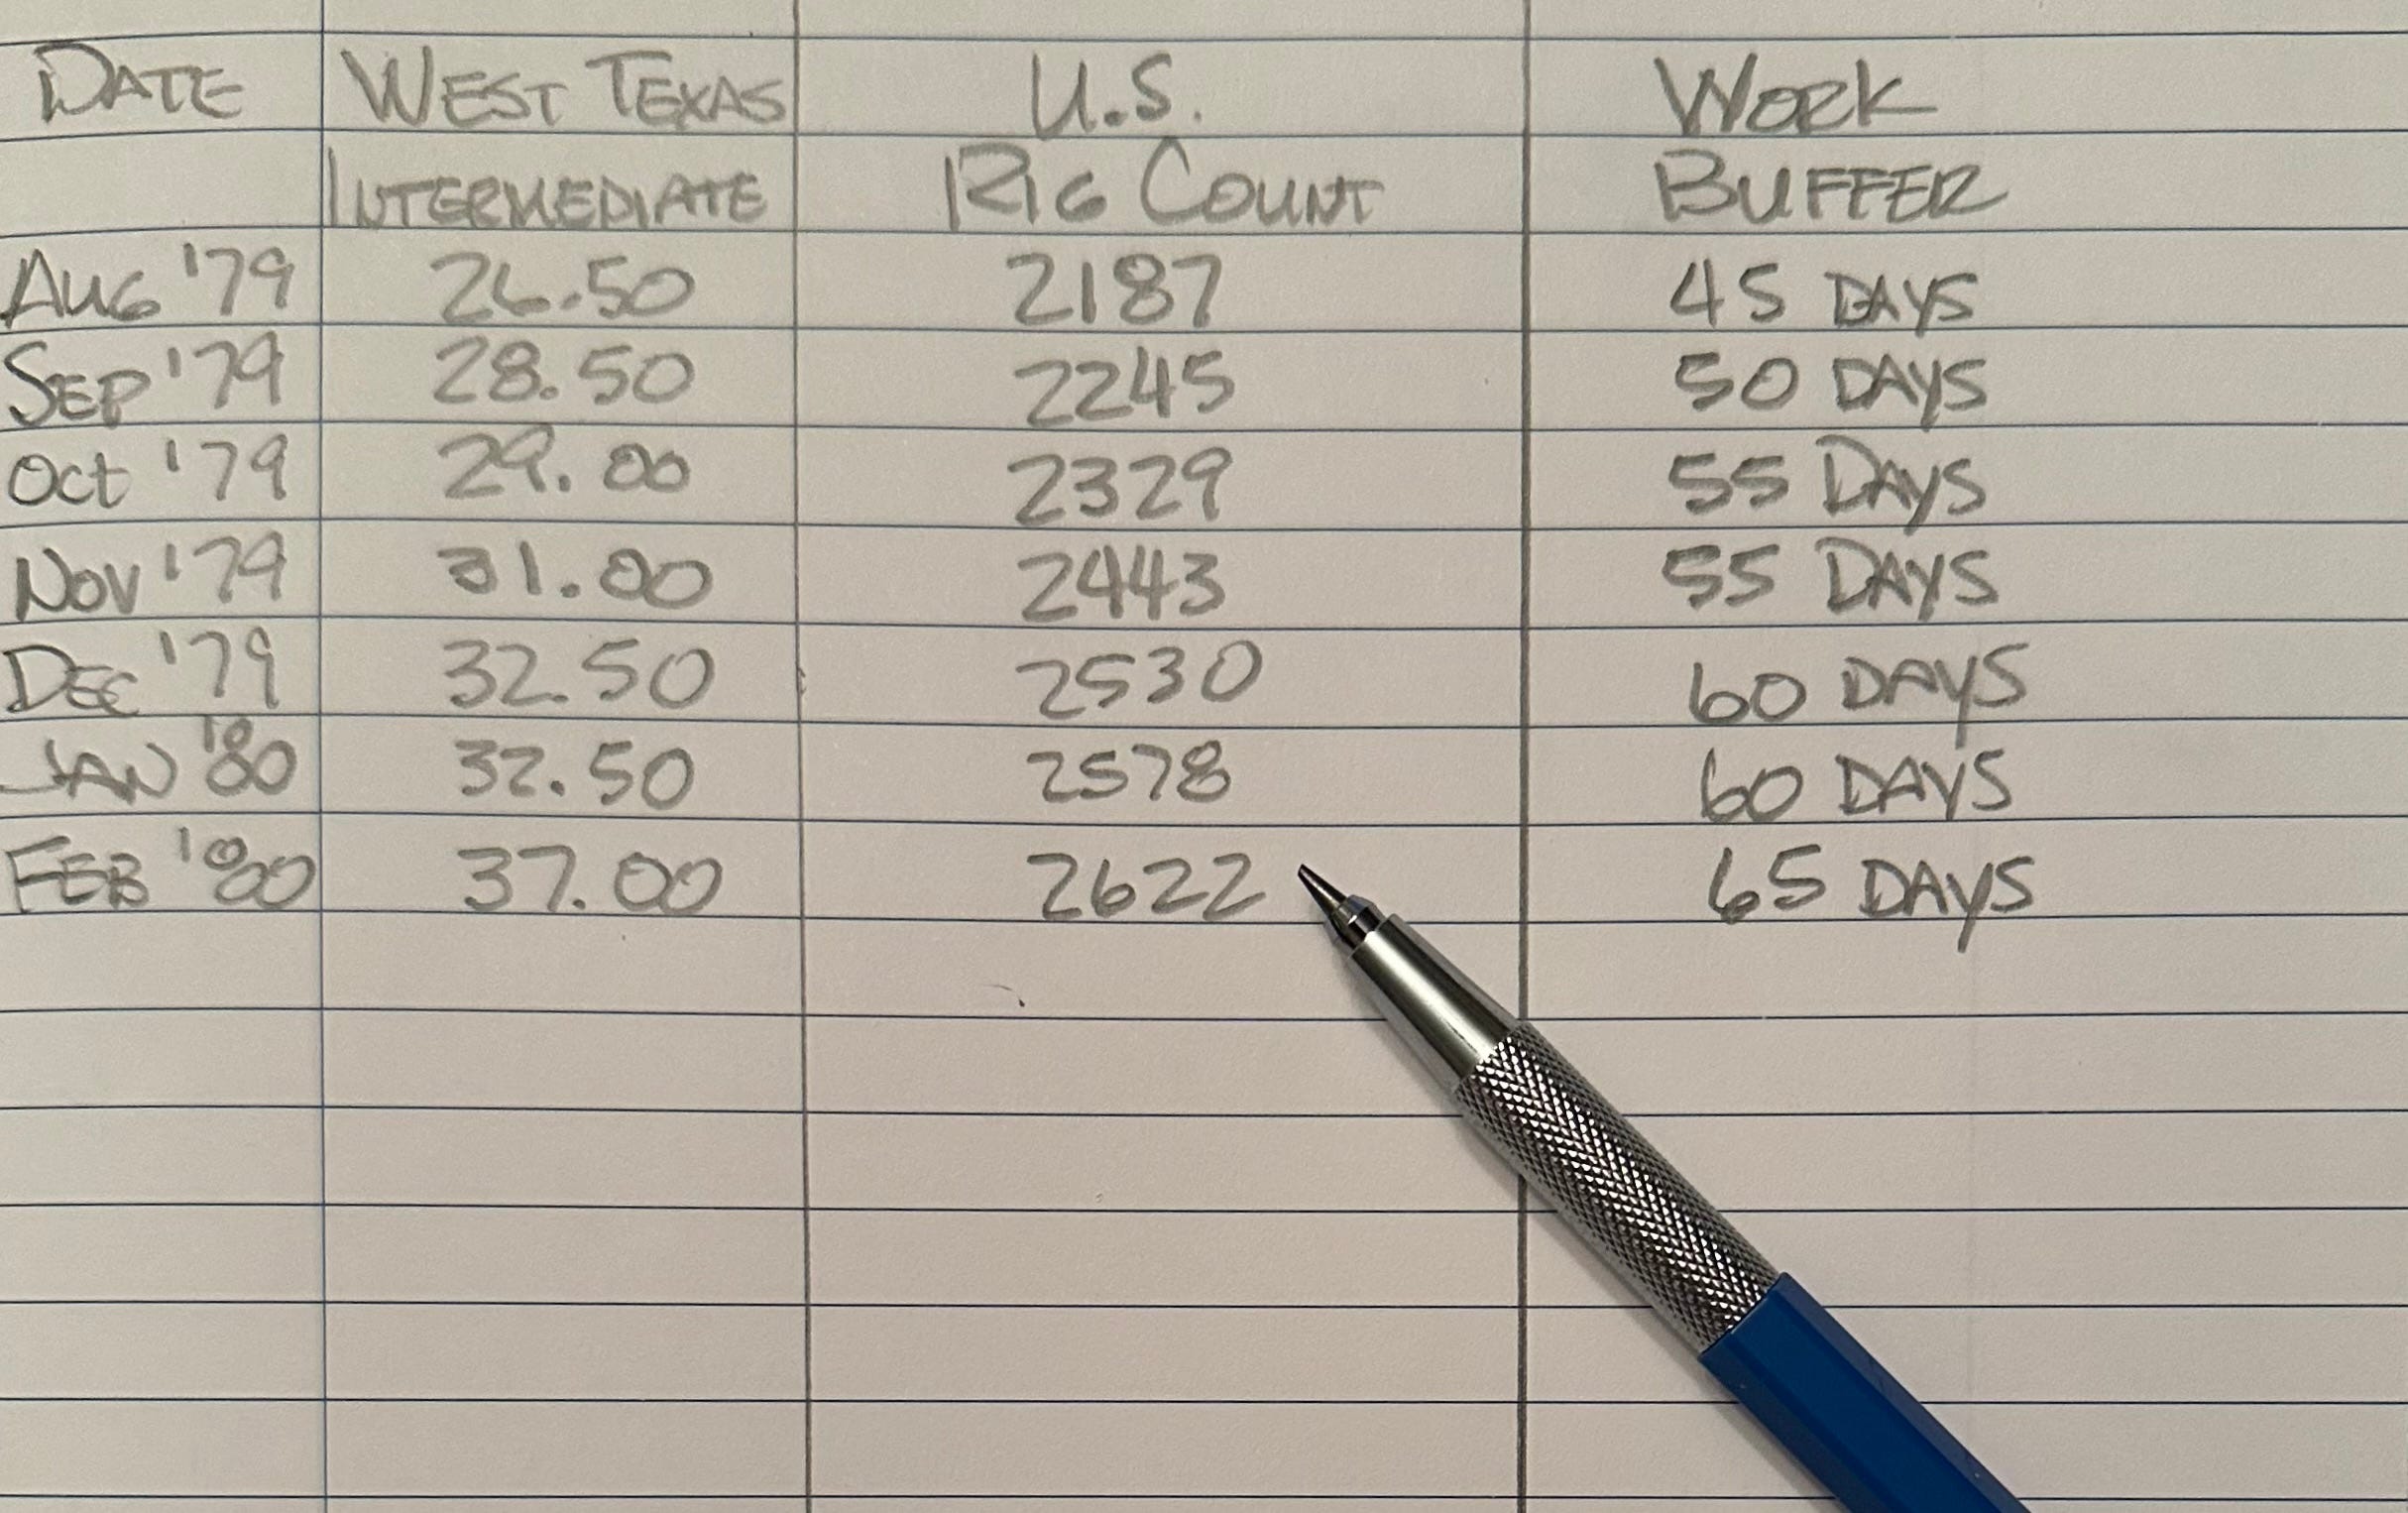 DATE WEST TEXAS U.S. WORK
INTERMEDIATE RIG COUNT BUFFER
AUG '79 26.50 2187 45 DAYS
SEP '79 28.50 2245 50 DAYS
Oct '79 29.00 2329 55 DAYS
NOV '79 31.00 2443 55 DAYS
DEC '79 32.50 2530 60 DAYS
JAN '80 32.50 2578 60 DAYS
FEB '80 37.00 2622 65 DAYS